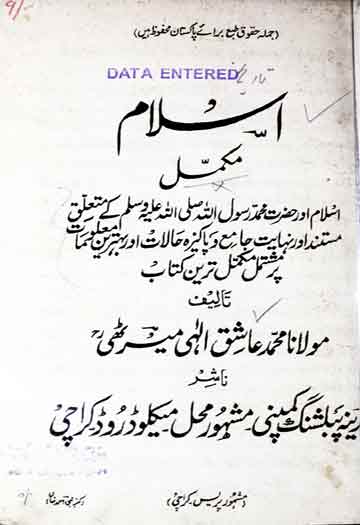 9/-
(جملہ حقوق طبع برائے پاکستان محفوظ ہیں)
DATA ENTERED
اسلام
مکمل
اسلام اور حضرت محمد رسول اللہ صلی اللہ علیہ وسلم کے متعلق
مستند اور نہایت جامع و پاکیزہ حالات اور بہترین معلومات
پر مشتمل مکمل ترین کتاب
تالیف
مولانا محمد عاشق الٰہی میرٹھیؒ
ناشر
مدینہ پبلشنگ کمپنی مشہور محل میکلوڈ روڈ کراچی
(مشہور پریس کراچی)